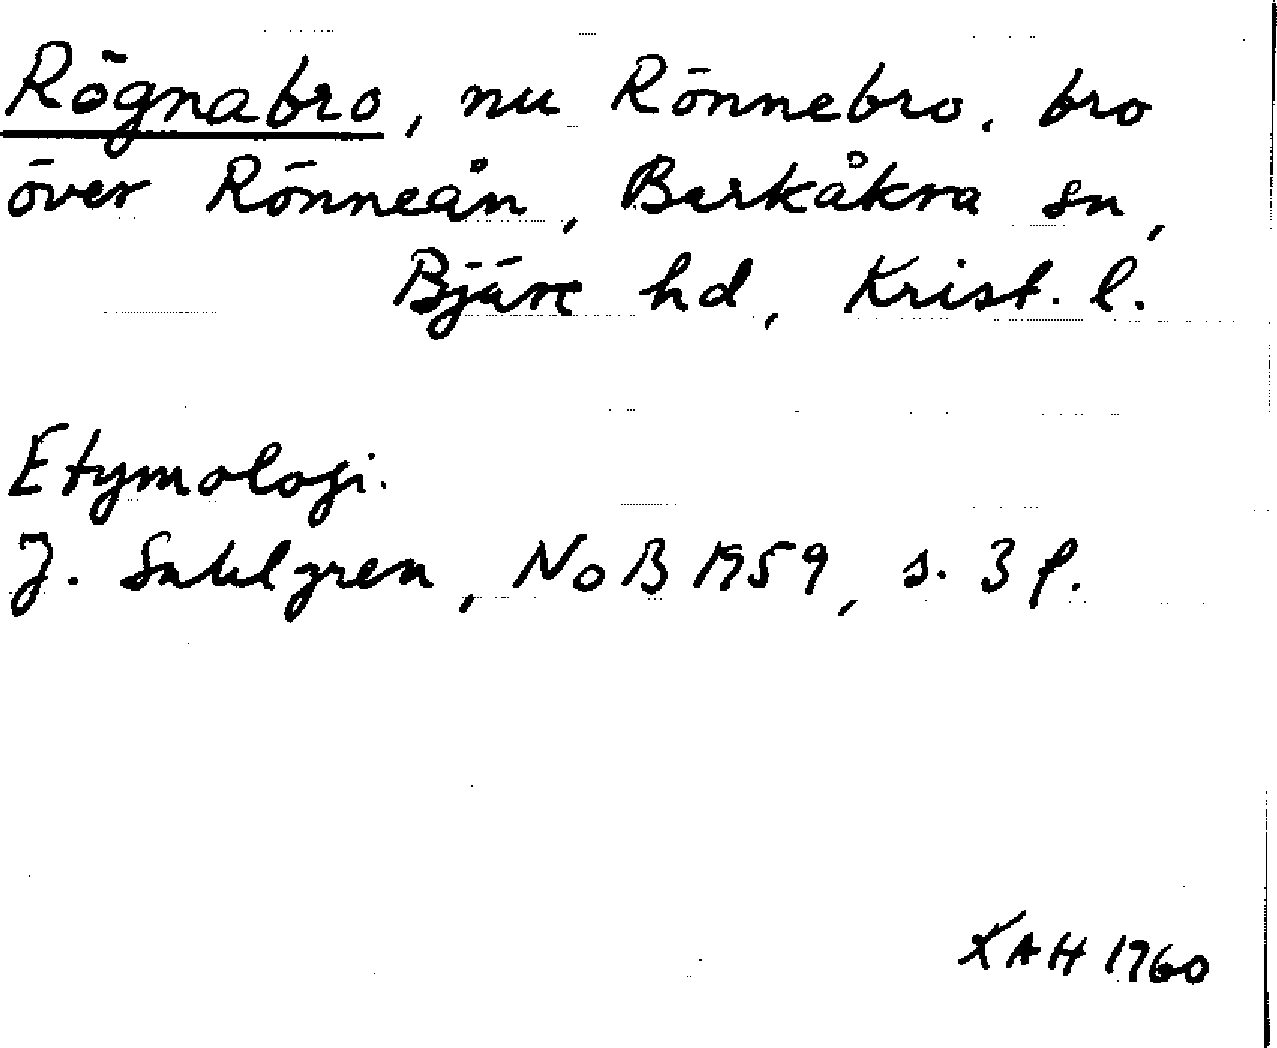 Rögnabro, nu Rönnebro, bro
över Rönneån, Barkåkra sn,
Bjäre hd, Krist. l.
Etymologi.
J. Sahlgren, NoB 1959, s. 3 f.
KAH 1960